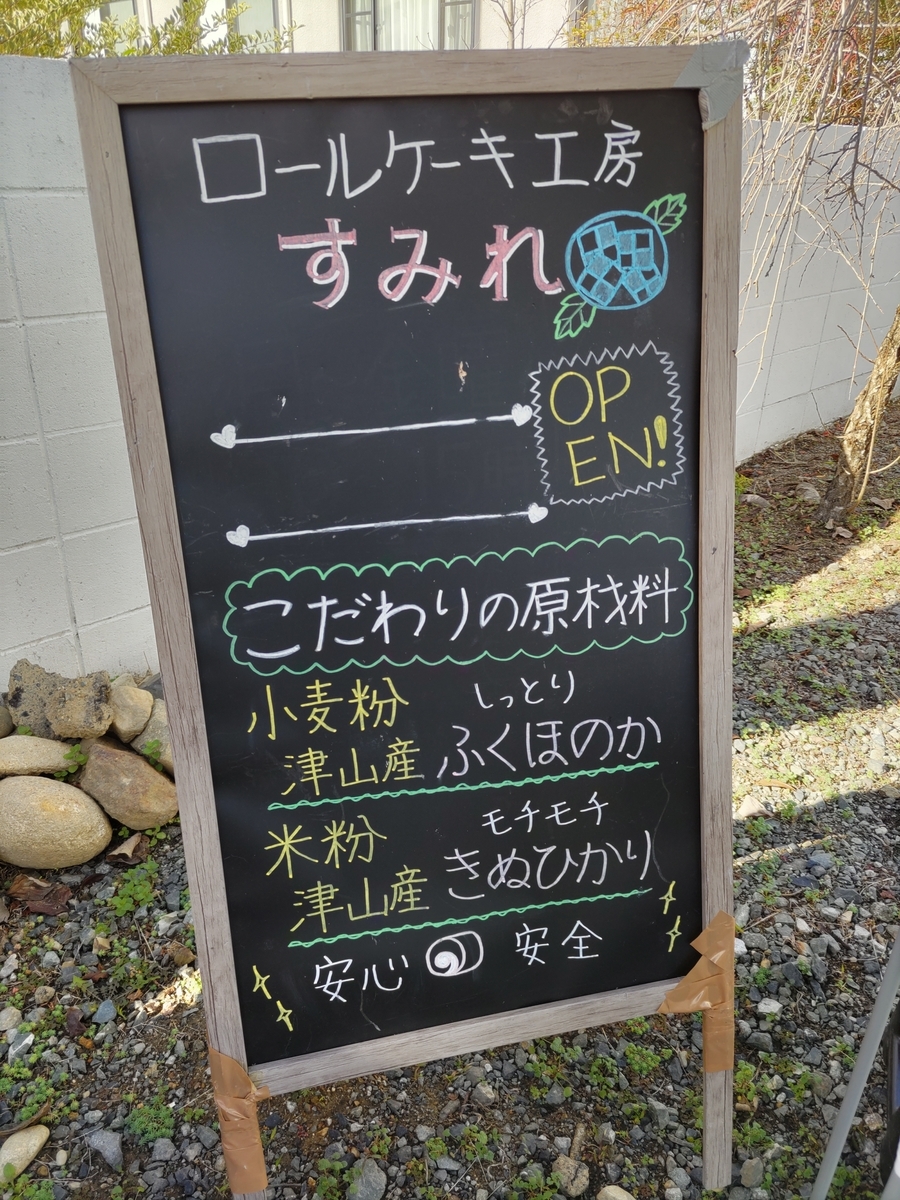 ロールケーキ工房
すみれ
OP
EN!
こだわりの原材料
小麦粉 しっとり
津山産 ふくほのか
米粉 モチモチ
津山産 きぬひかり
安心 安全